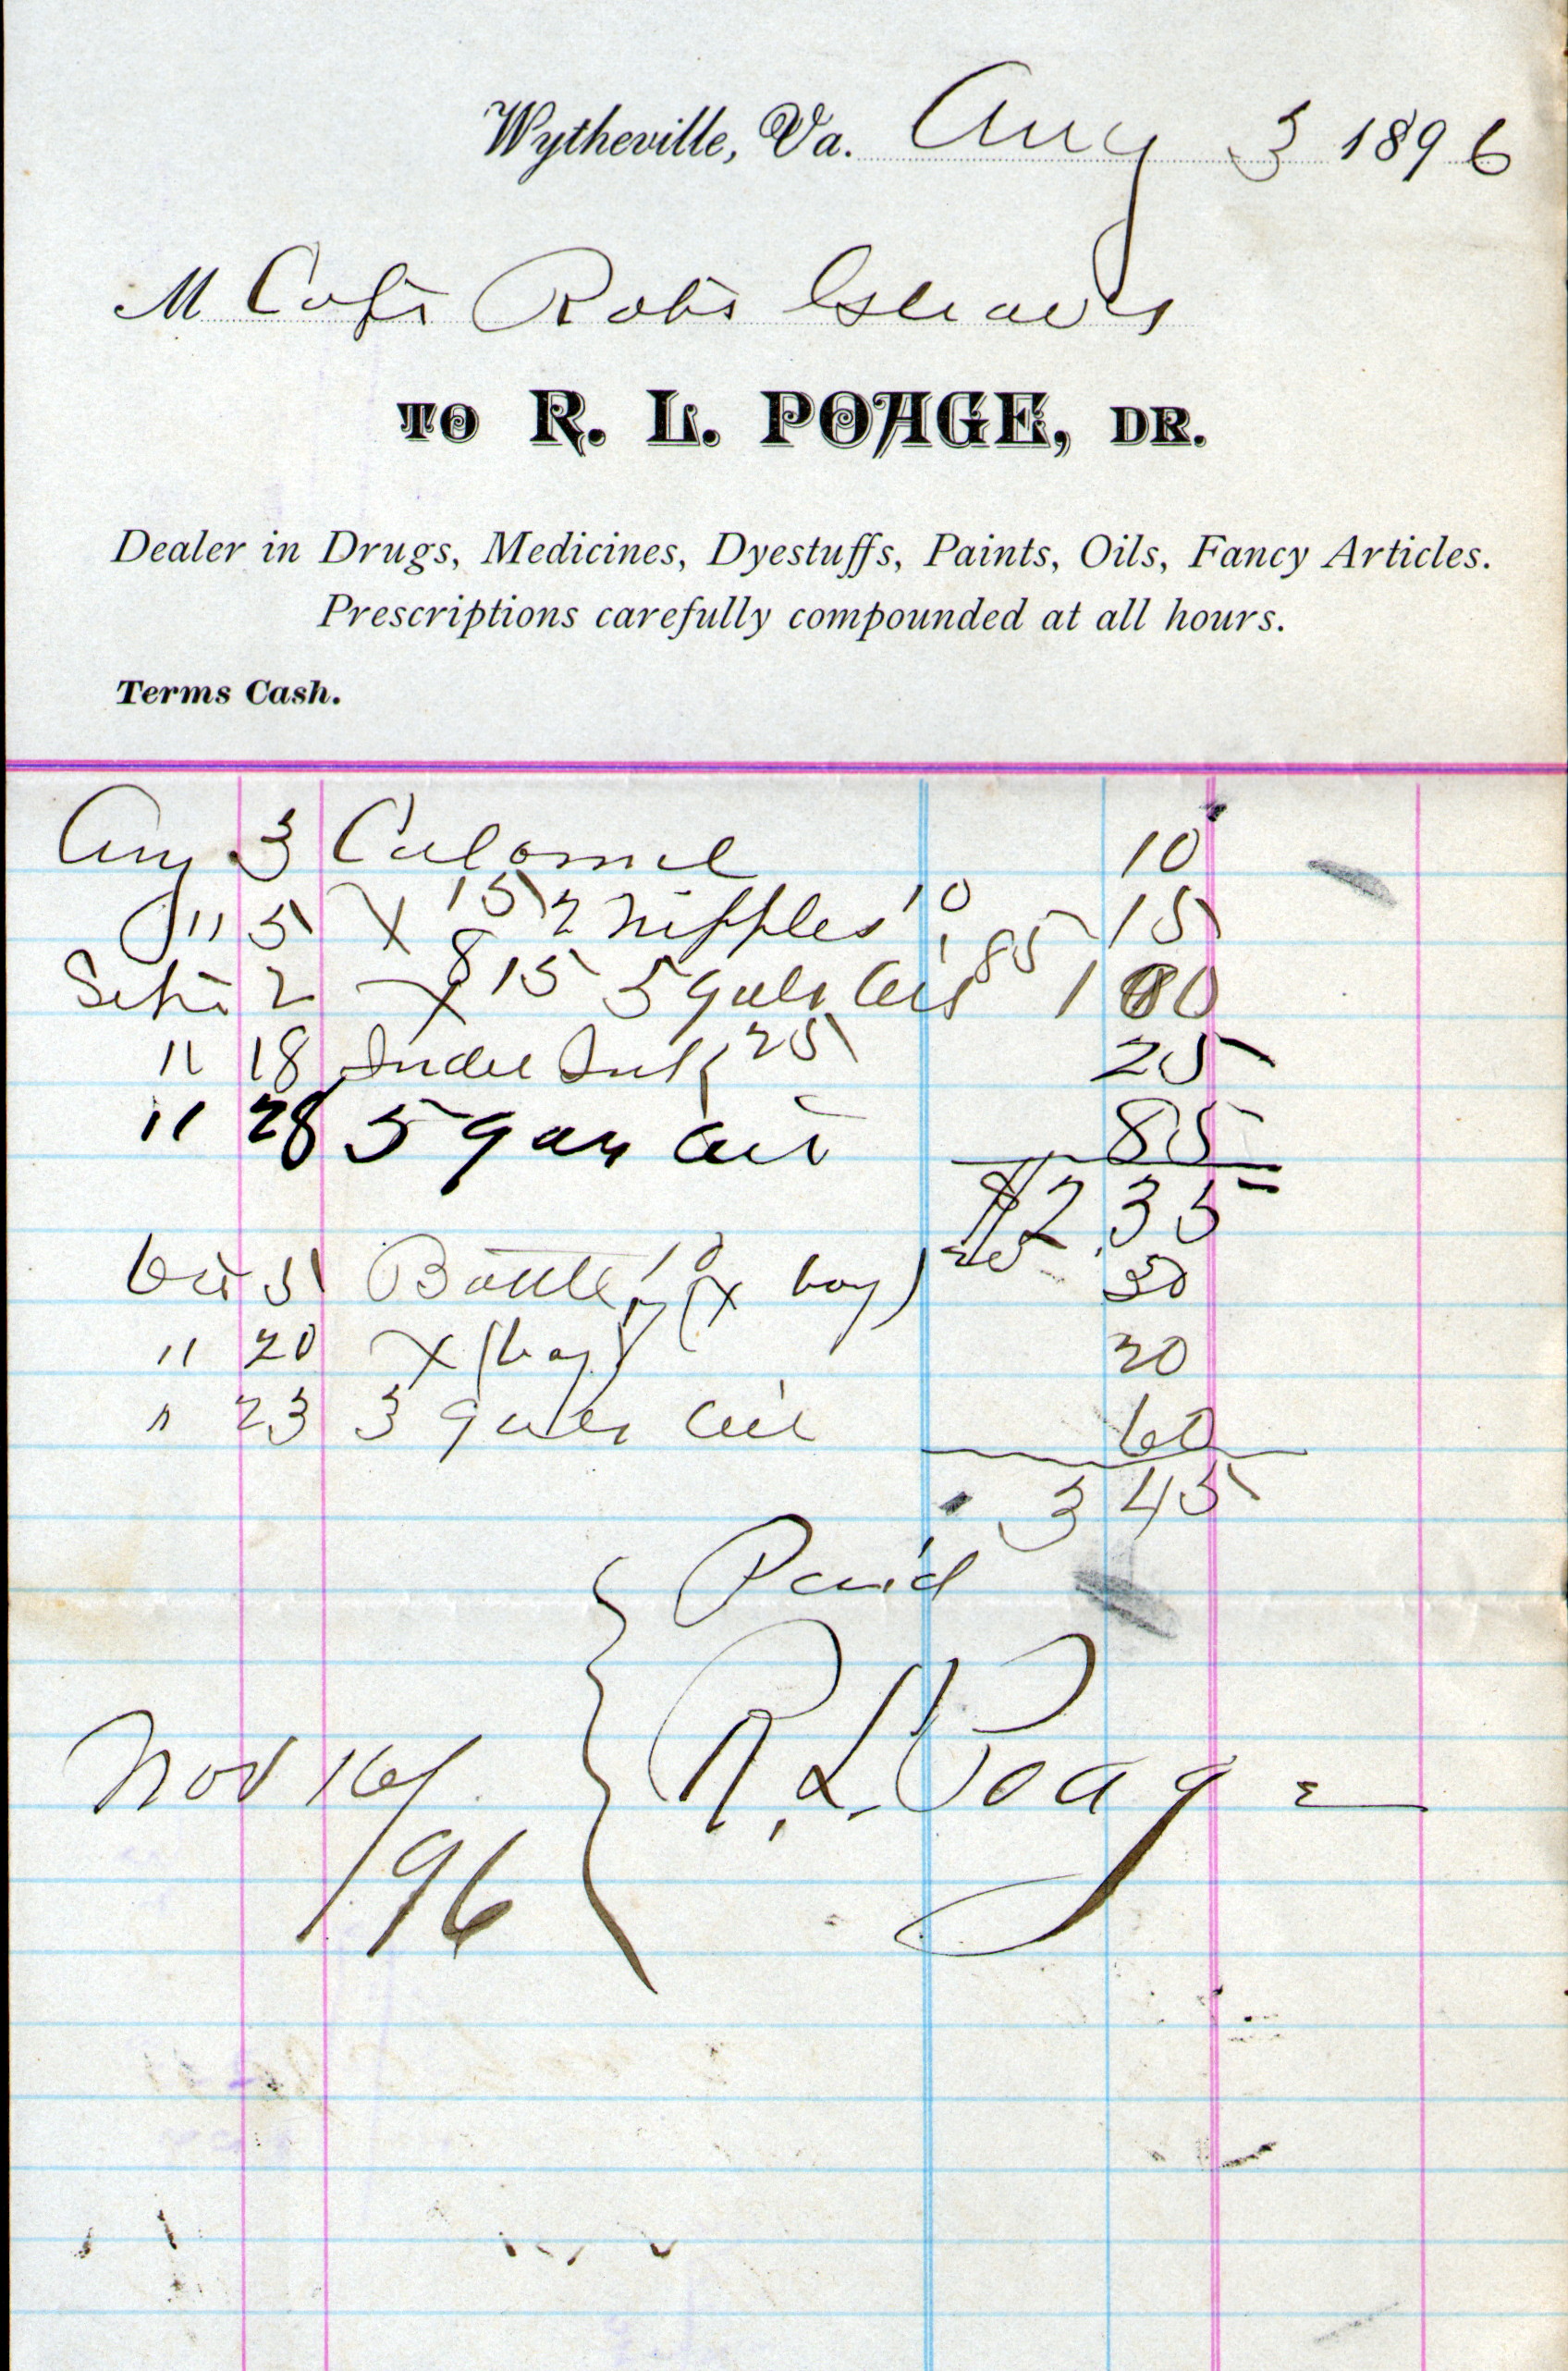 Wytheville, Va. Aug 3 1896
M Capt Robt Gleaves
TO R. L. POAGE, DR.
Dealer in Drugs, Medicines, Dyestuffs, Paints, Oils, Fancy Articles.
Prescriptions carefully compounded at all hours.
Terms Cash.
Aug 3 Calomel 10
" 5 X 15 2 Nipples 10 15
Sept 2 X 15 5 gals Oil 85 1 00
" 18 Ink 25 25
" 28 5 gals Oil 85
$2.35
Oct 5 Bottle 10 (X boy) 20 30
" 20 X (boy) 20
" 23 3 gals Oil 60
3 45
Paid
R. L. Poage
Nov 16/
/96